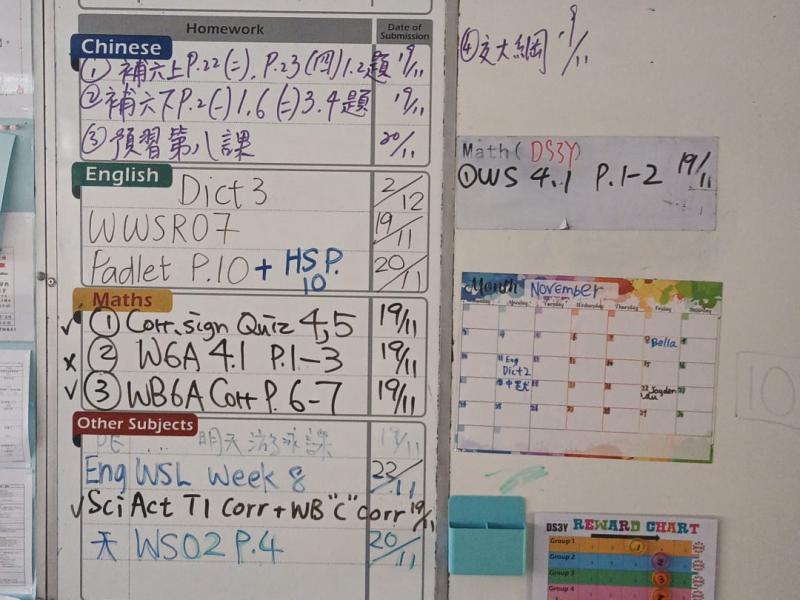 Homework Date of Submission
Chinese
① 補六上P.22(二), P.23(四)1.2題 19/11
② 補六下P.2(一)1.6(二)3.4題 19/11
③ 預習第八課 20/11
English
Dict 3 2/12
WWSR07 19/11
Padlet P.10 + HS P.10 20/11
Maths
✓ ① Corr. sign Quiz 4,5 19/11
x ② W6A 4.1 P.1-3 19/11
✓ ③ WB6A Corr P. 6-7 19/11
Other Subjects
PE ... 明天游泳課 19/11
Eng WSL Week 8 22/11
✓ Sci Act T1 Corr + WB "C" corr 19/11
天 WS02 P.4 20/11
④ 交大綱 19/11
Math (DS3Y)
① WS 4.1 P.1-2 19/11
Month November
Bella
Eng
Dict 2
Jayden
10
DS3Y REWARD CHART
Group 1
Group 2
Group 3
Group 4